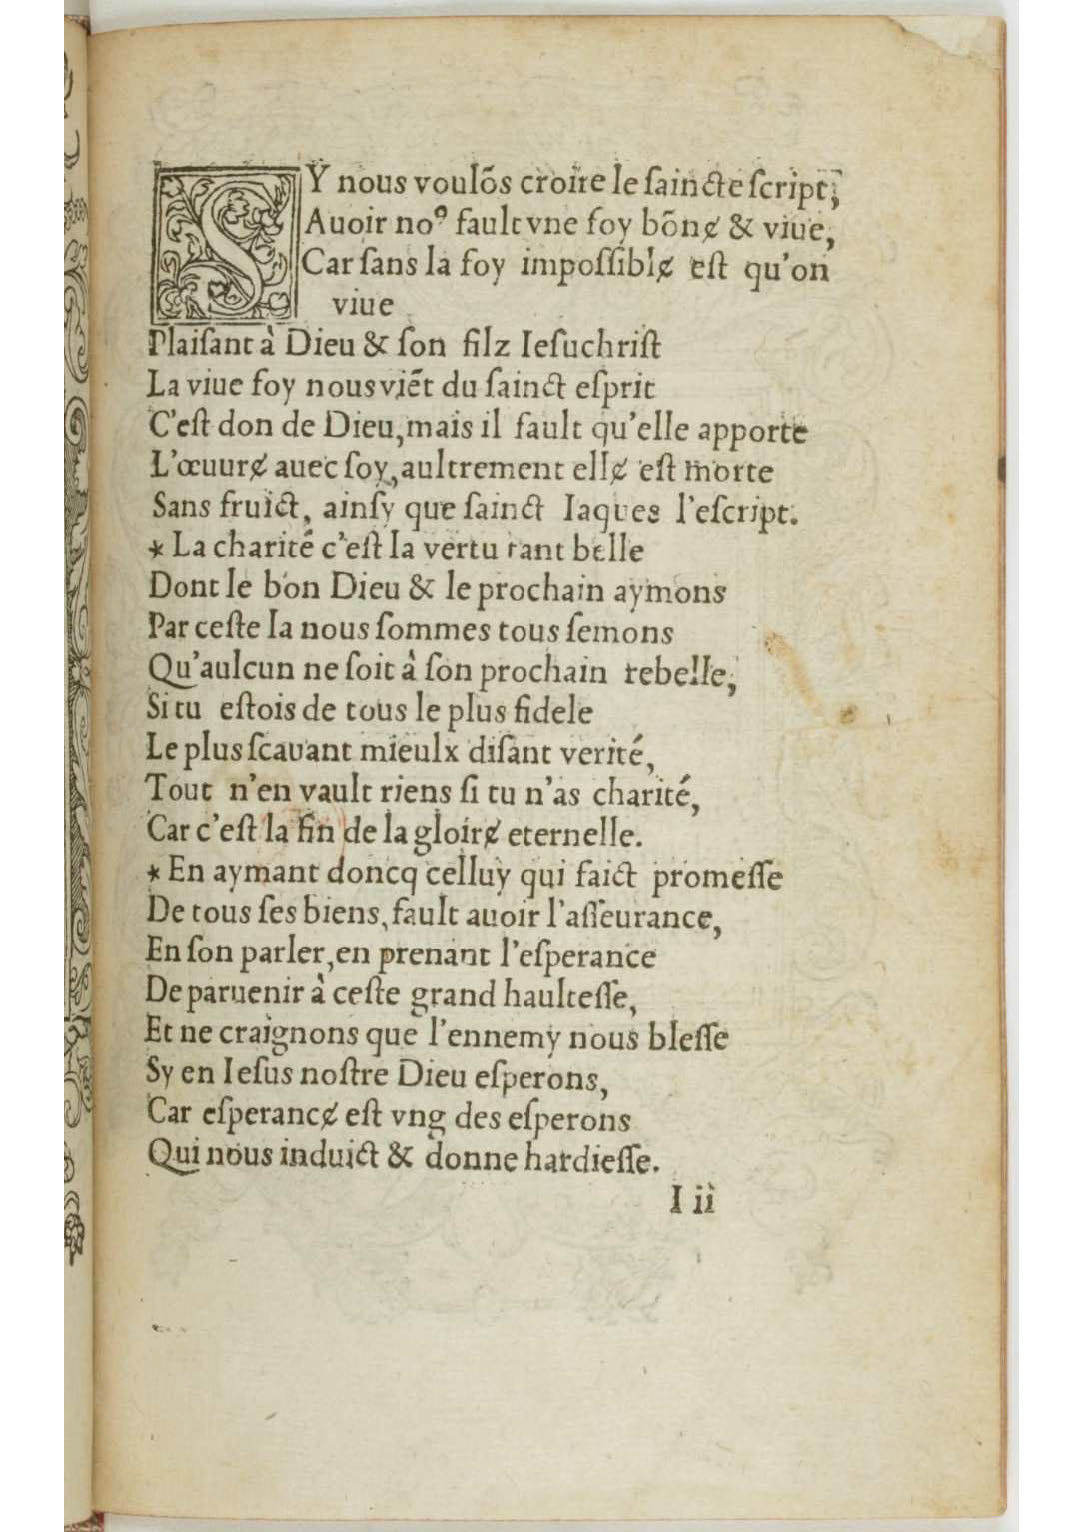 SY nous voulõs croire le saincte script,
Auoir noꝰ fault vne foy bõnɇ & viue,
Car sans la foy impossiblɇ est qu'on
viue
Plaisant à Dieu & son filz Iesuchrist
La viue foy nous viẽt du sainct esprit
C'est don de Dieu, mais il fault qu'elle apporte
L'œuurɇ auec soy, aultrement ellɇ est morte
Sans fruict, ainsy que sainct Iaques l'escript.
* La charité c'est la vertu tant belle
Dont le bon Dieu & le prochain aymons
Par ceste la nous sommes tous semons
Qu'aulcun ne soit à son prochain rebelle,
Si tu estois de tous le plus fidele
Le plus scauant mieulx disant verité,
Tout n'en vault riens si tu n'as charité,
Car c'est la fin de la gloirɇ eternelle.
* En aymant doncq celluy qui faict promesse
De tous ses biens, fault auoir l'asseurance,
En son parler, en prenant l'esperance
De paruenir à ceste grand haultesse,
Et ne craignons que l'ennemy nous blesse
Sy en Iesus nostre Dieu esperons,
Car esperancɇ est vng des esperons
Qui nous induict & donne hardiesse.
I ii